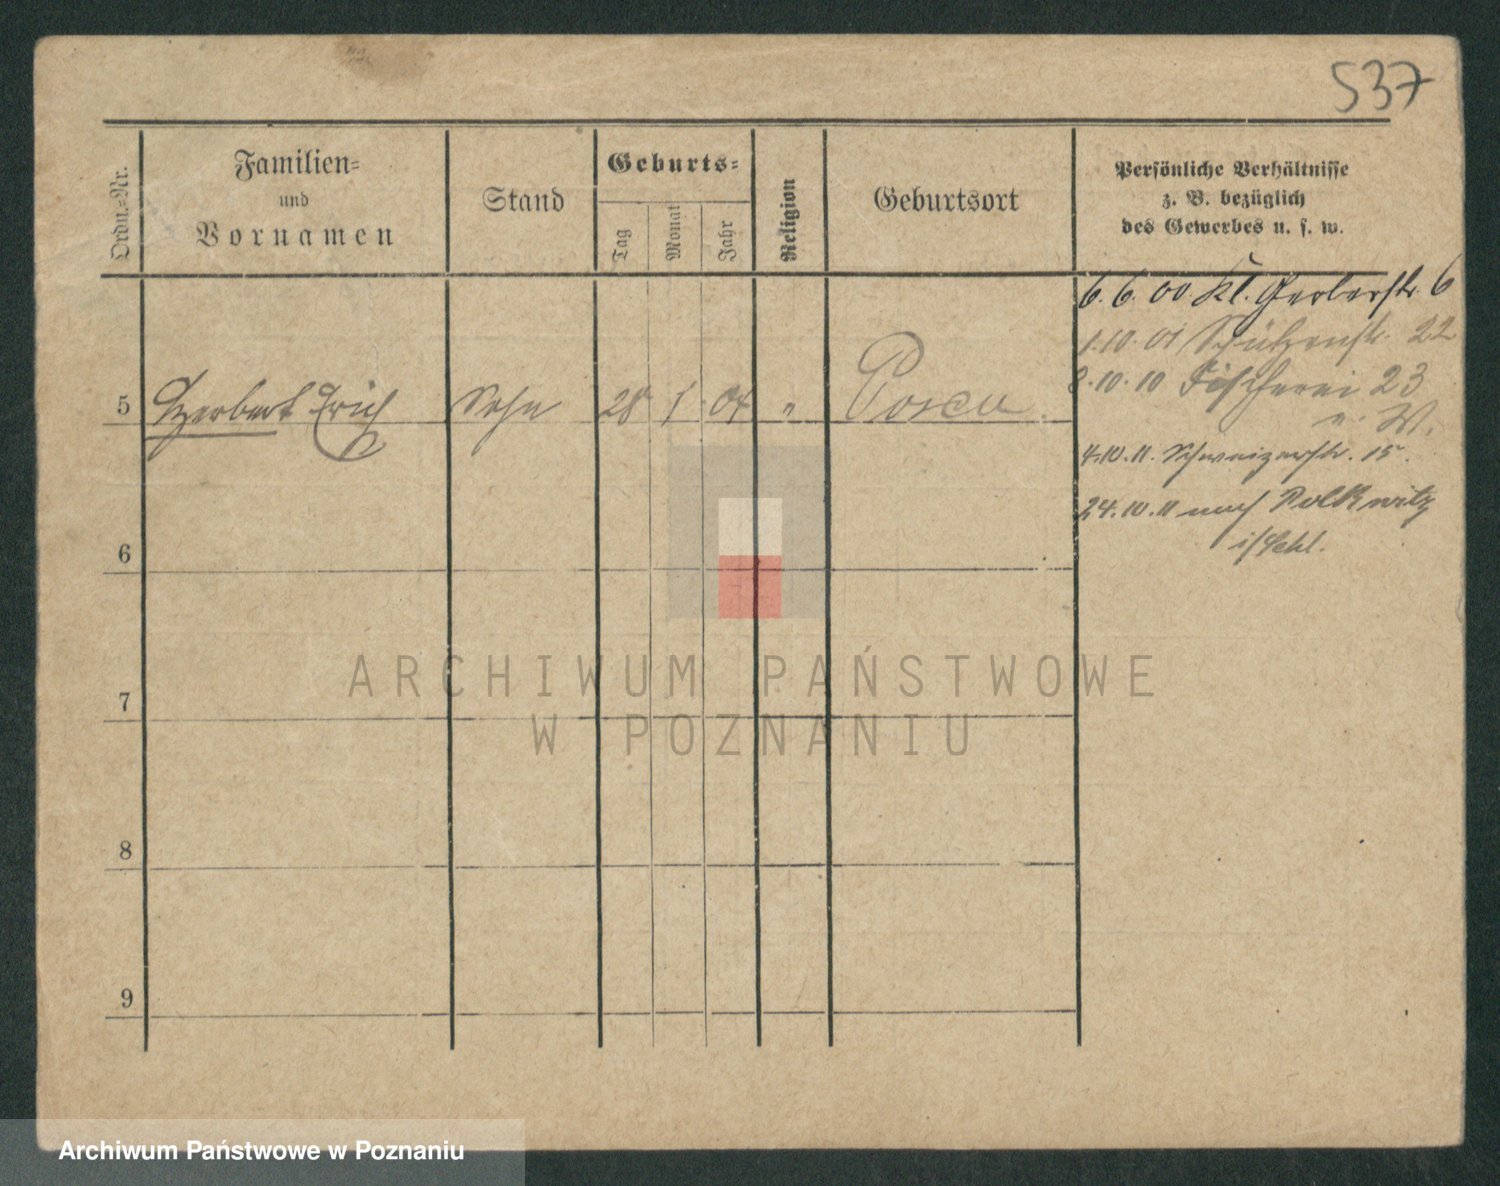 537
Ordn.-Nr.
Familien-
und
Vornamen
Stand
Geburts-
Tag
Monat
Jahr
Religion
Geburtsort
Persönliche Verhältnisse
z. B. bezüglich
des Gewerbes u. s. w.
6.6.00 Kl. Gerberstr. 6
1.10.01 Schützenstr. 22
8.10.10 Fischerei 23
W.
4.10.11. Schweizerstr. 15.
24.10.11 nach Polkwitz
i/Schl.
5 Herbert Erich Sohn 28 1 04 " Posen.
6
7
8
9
ARCHIWUM PAŃSTWOWE
W POZNANIU
Archiwum Państwowe w Poznaniu